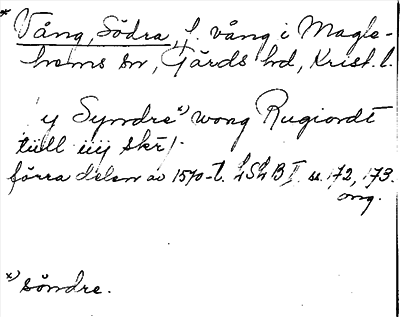 * Vång, Södra, f. vång i Magle-
hems sn, Gärds hd, Krist. l.
y Syndre *) wong Rugiordt
tüll iiij skr/.
förra delen av 1570-t. LSLB II. s. 172, 173.
ong.
*) söndre.